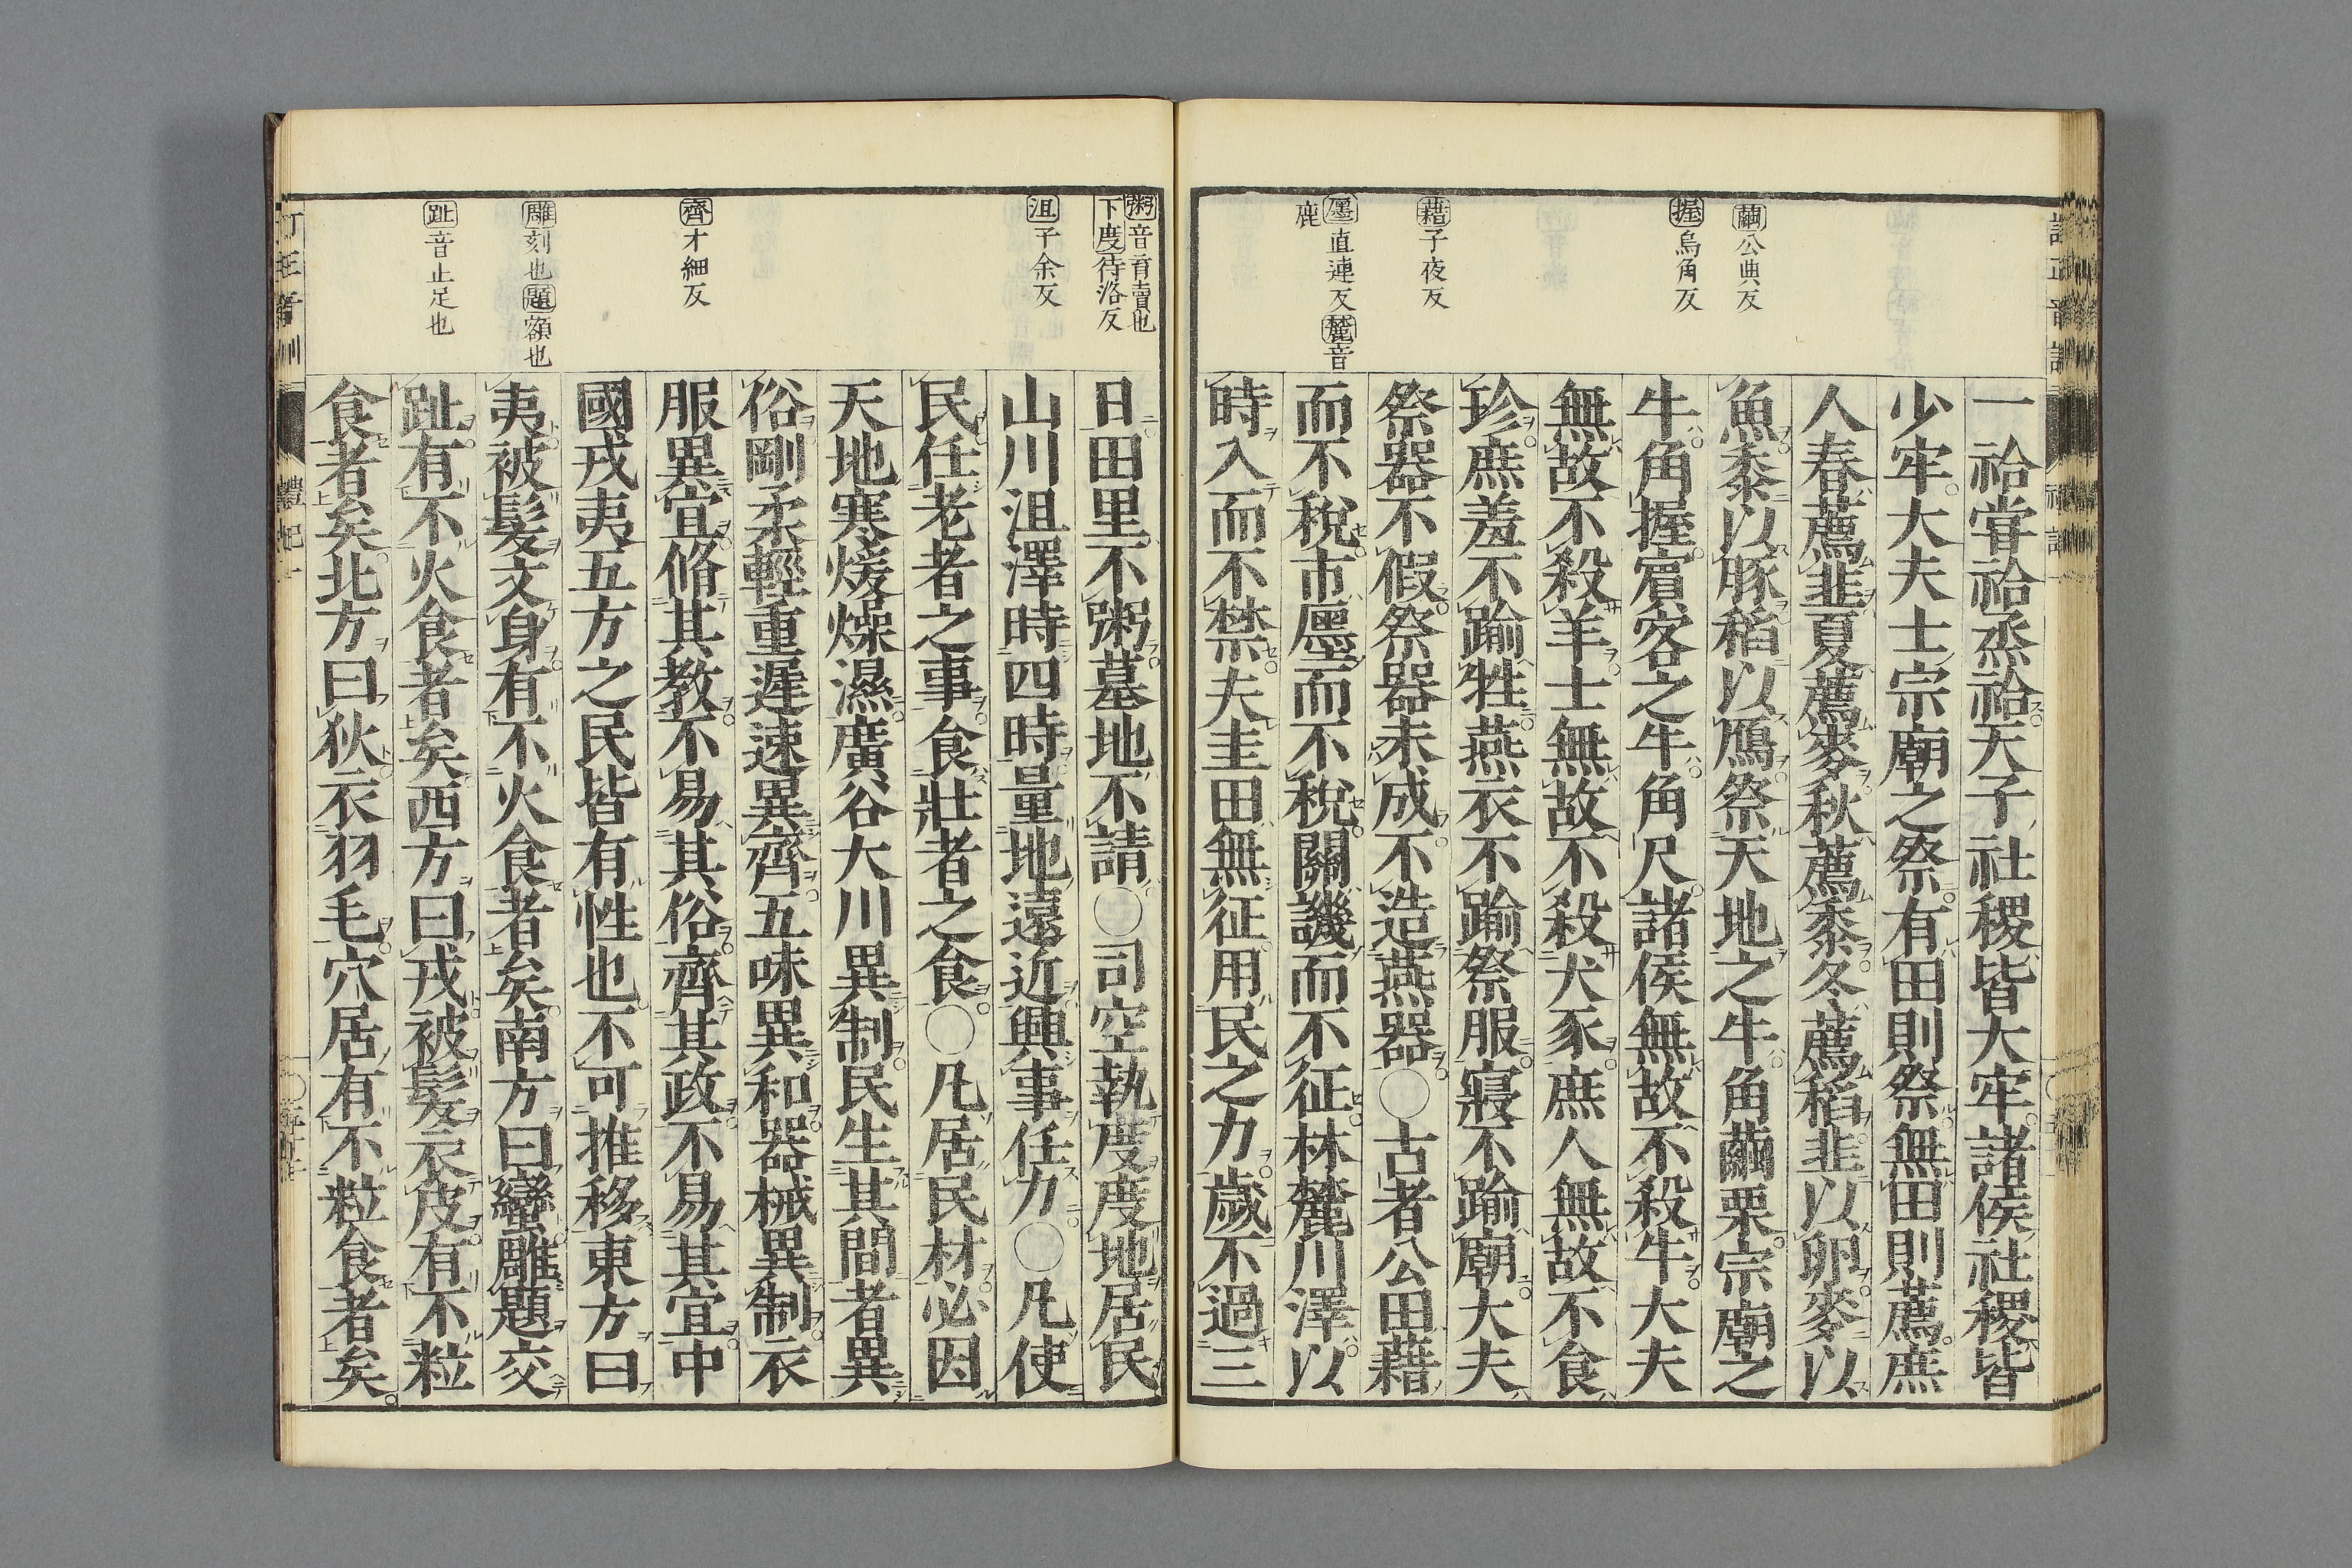 繭公典反
握烏角反
藉子夜反
廛直連反麓音
鹿
一祫甞祫烝祫天子社稷皆大牢諸侯社稷皆
少牢大夫士宗廟之祭有田則祭無田則薦庶
人春薦韭夏薦麥秋薦黍冬薦稻韭以卵麥以
魚黍以豚稻以鴈祭天地之牛角繭栗宗廟之
牛角握賓客之牛角尺諸侯無故不殺牛大夫
無故不殺羊士無故不殺犬豕庶人無故不食
珍庶羞不踰牲燕衣不踰祭服寢不踰廟大夫
祭器不假祭器未成不造燕器○古者公田藉
而不稅市廛而不稅關譏而不征林麓川澤以
時入而不禁夫圭田無征用民之力歲不過三
粥音育賣也
下度待洛反
沮子余反
齊才細反
雕刻也題額也
趾音止足也
日田里不粥墓地不請○司空執度度地居民
山川沮澤時四時量地遠近興事任力○凡使
民任老者之事食壯者之食○凡居民材必因
天地寒煖燥濕廣谷大川異制民生其間者異
俗剛柔輕重遲速異齊五味異和器械異制衣
服異宜脩其教不易其俗齊其政不易其宜中
國戎夷五方之民皆有性也不可推移東方曰
夷被髮文身有不火食者矣南方曰蠻雕題交
趾有不火食者矣西方曰戎被髮衣皮有不粒
食者矣北方曰狄衣羽毛穴居有不粒食者矣